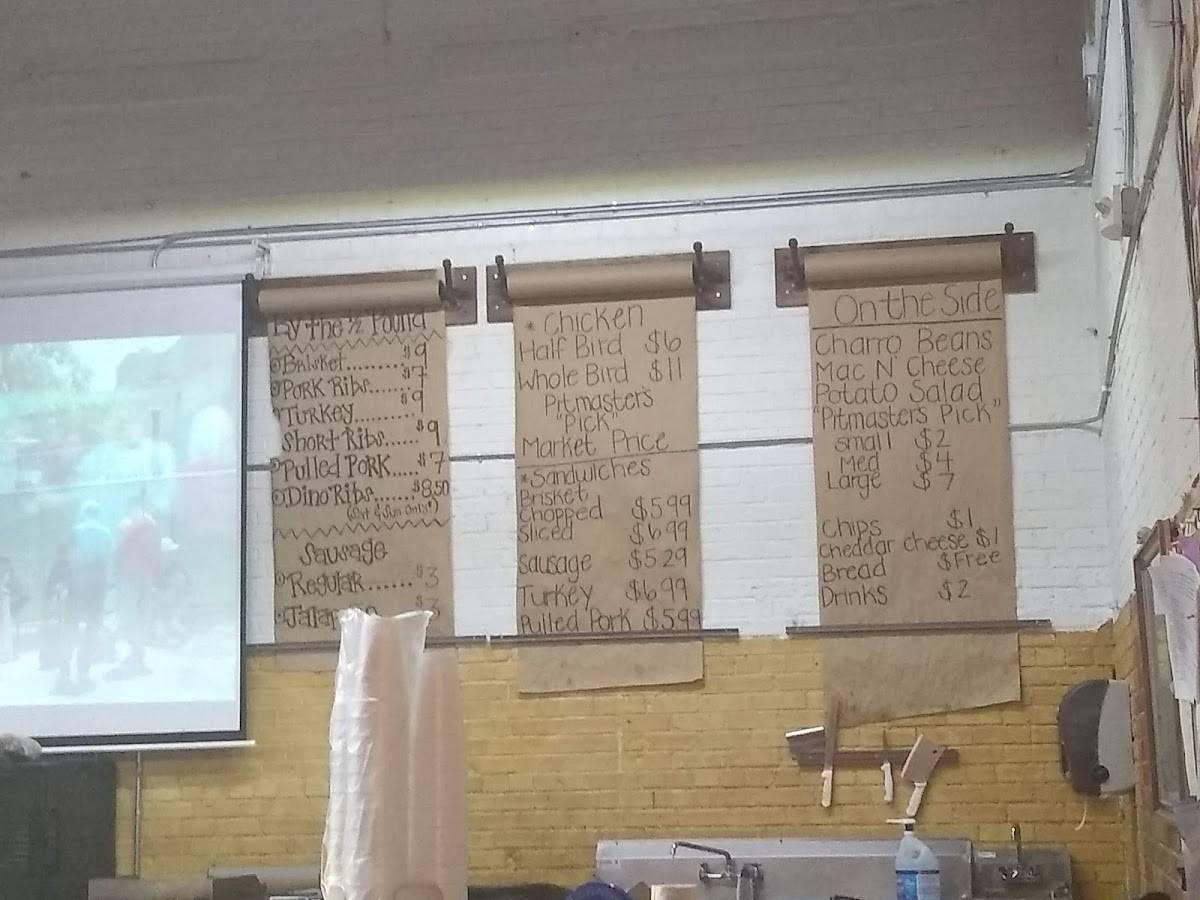 By the ½ Pound
Brisket......... $9
Pork Ribs....... $7
Turkey......... $9
Short Ribs...... $9
Pulled Pork..... $7
Dino Ribs....... $8.50
(Sat & Sun Only*)
Sausage
Regular....... $3
$3
* Chicken
Half Bird $6
Whole Bird $11
Pitmasters
"Pick"
Market Price
*Sandwiches
Brisket
Chopped $5.99
Sliced $6.99
Sausage $5.29
Turkey $6.99
Pulled Pork $5.99
On the Side
Charro Beans
Mac N' Cheese
Potato Salad
"Pitmasters Pick"
Small $2
Med $4
Large $7
Chips $1
Cheddar Cheese $1
Bread $Free
Drinks $2